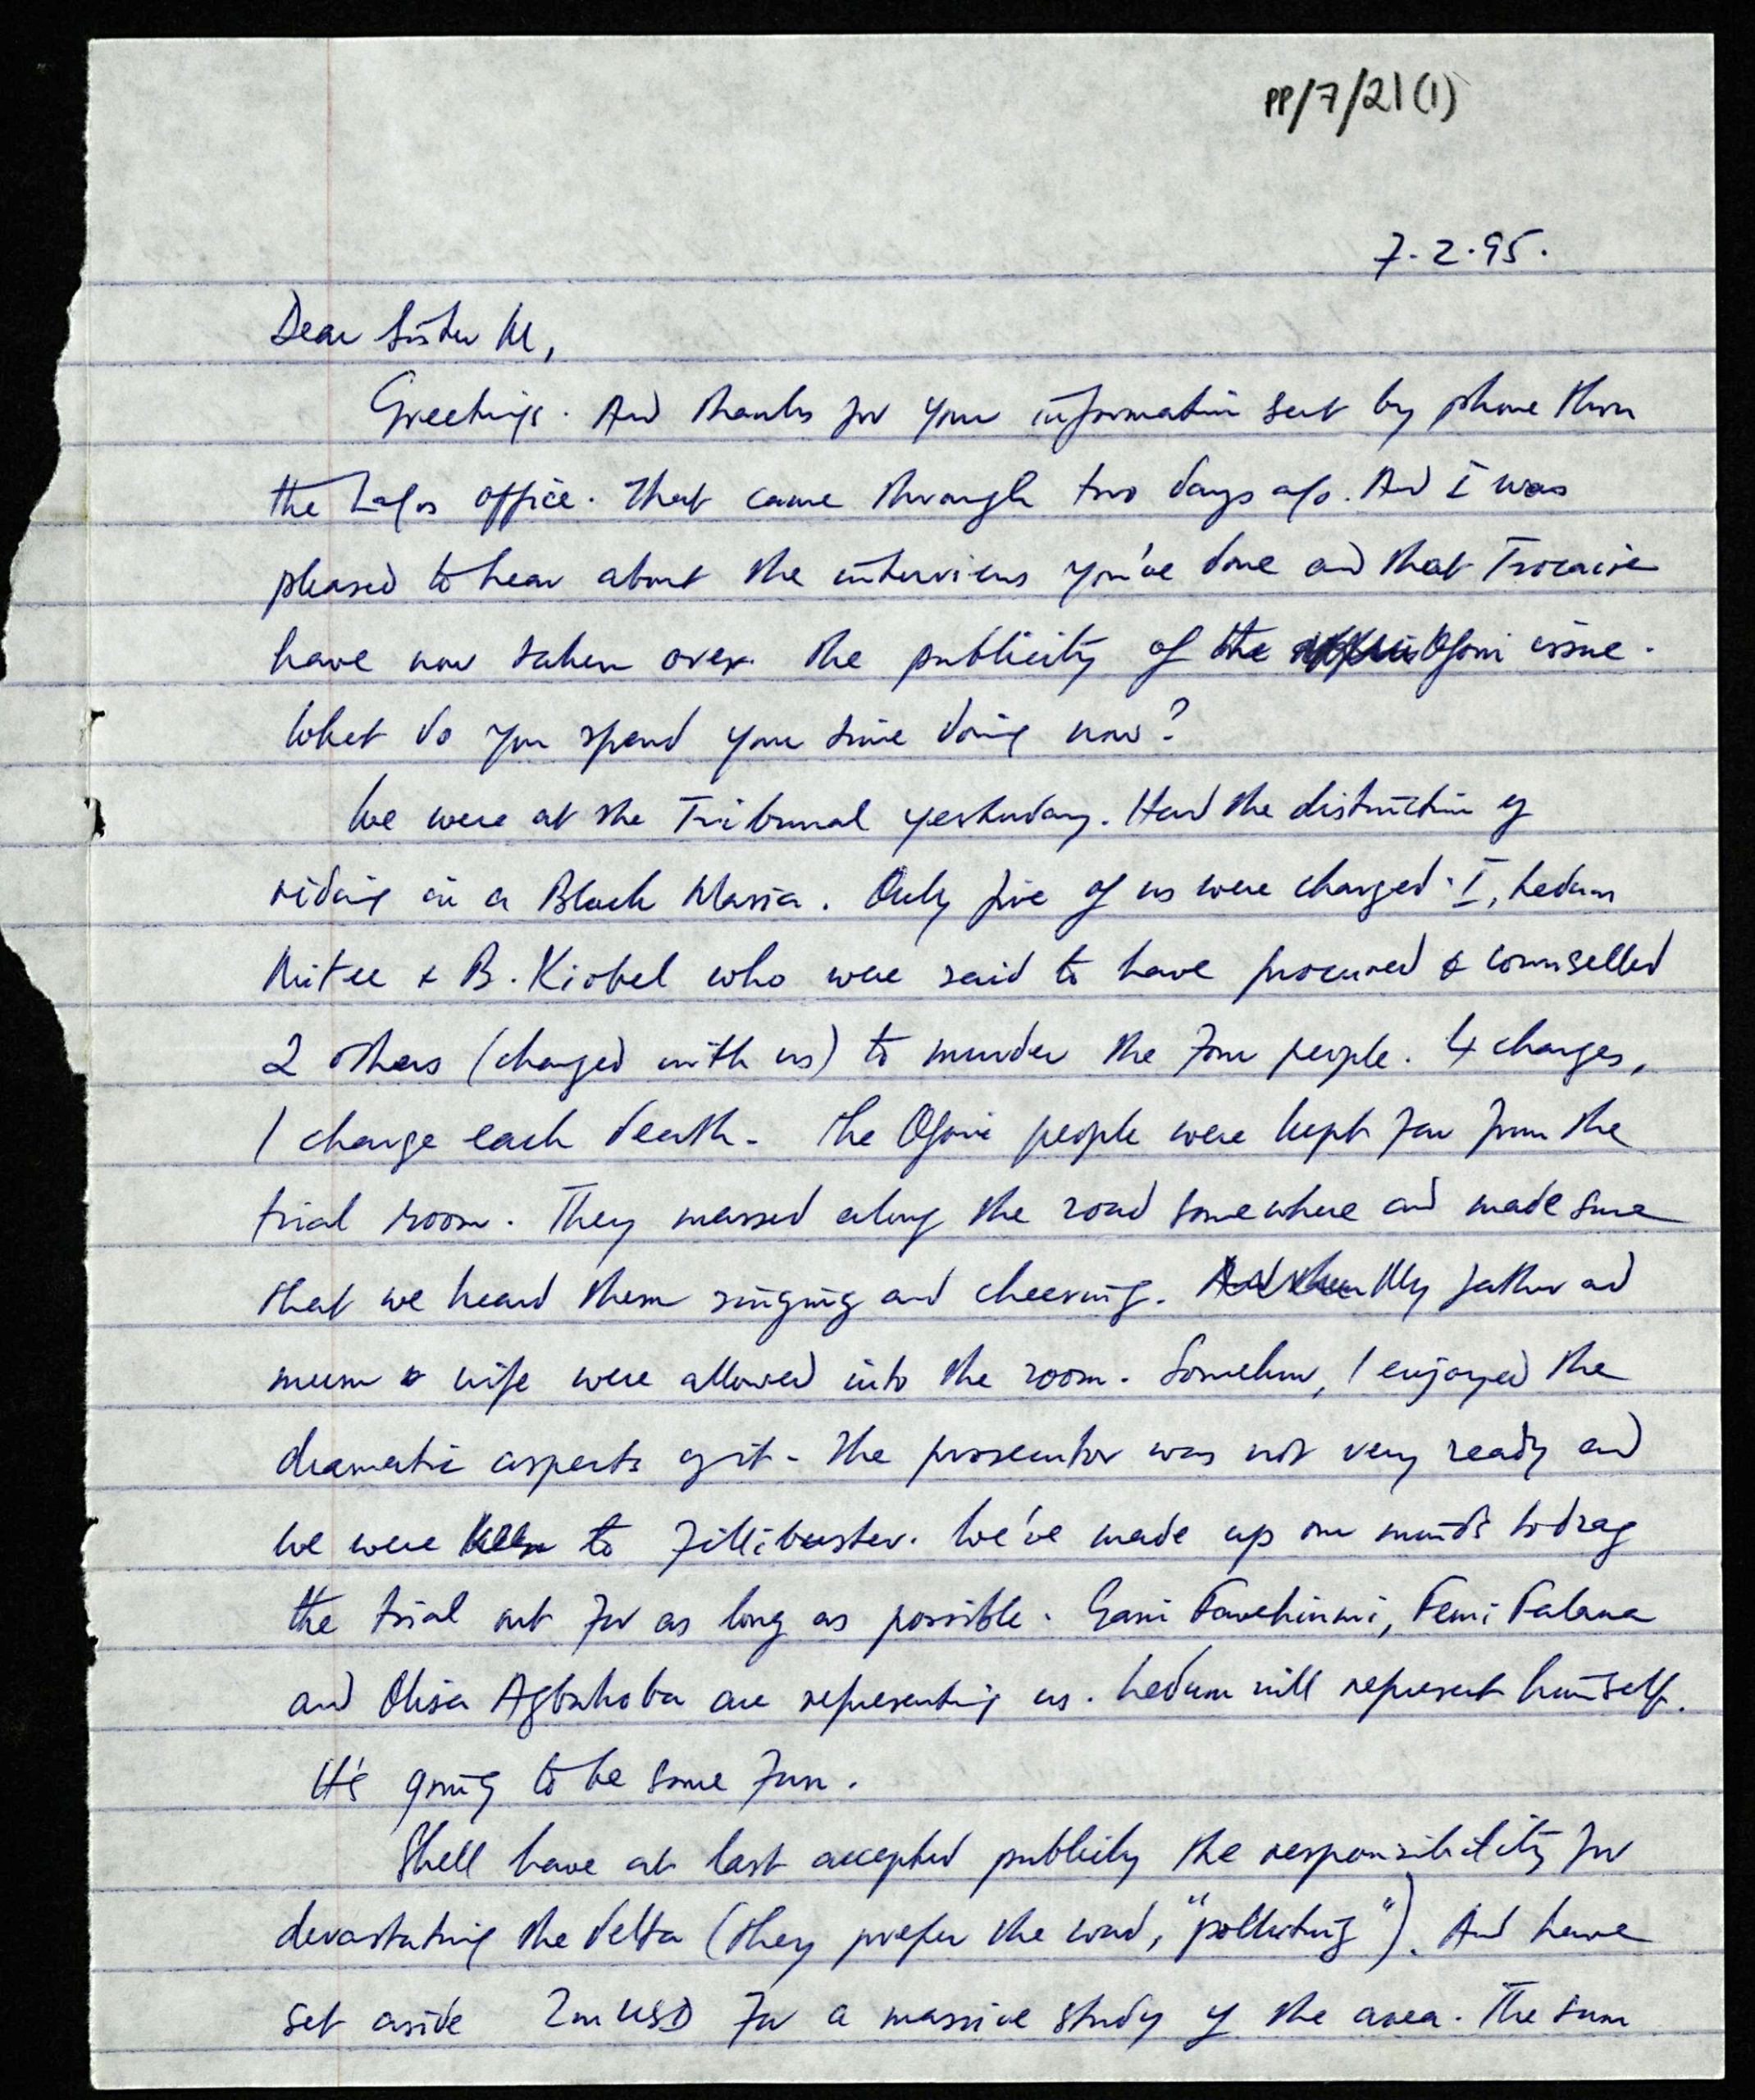 PP/7/21(1)
7.2.95.
Dear Sister M,
Greetings. And thanks for your information sent by phone thru
the Lagos office. That came through two days ago. And I was
pleased to hear about the interviews you've done and that Trocaire
have now taken over the publicity of the Ogoni issue.
What do you spend your time doing now?
We were at the Tribunal yesterday. Had the distinction of
riding in a Black Maria. Only five of us were charged: I, Ledum
Mitee & B. Kiobel who were said to have procured & counselled
2 others (charged with us) to murder the four people. 4 charges,
1 charge each death. The Ogoni people were kept far from the
trial room. They massed along the road somewhere and made sure
that we heard them singing and cheering. And then My father and
mum & wife were allowed into the room. Somehow, I enjoyed the
dramatic aspects of it. The prosecutor was not very ready and
we were keen to fillibuster. We've made up our minds to drag
the trial out for as long as possible. Gani Fawehinmi, Femi Falana
and Olisa Agbakoba are representing us. Ledum will represent himself.
It's going to be some fun.
Shell have at last accepted publicly the responsibility for
devastating the delta (they prefer the word, "polluting"). And have
set aside 2m USD for a massive study of the area. The sum